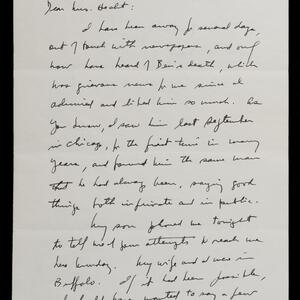 Dear Mrs. Hecht:
I have been away for several days,
out of touch with newspapers, and only
now have heard of Ben's death, which
was grievous news for me since I
admired and liked him so much. As
you know, I saw him last September
in Chicago, for the first time in many
years, and found him the same man
that he had always been, saying good
things both in private and in public.
My son phoned me tonight
to tell me of your attempts to reach me
here Sunday. My wife and I was in
Buffalo. If it had been possible,
I should have wanted to say a few